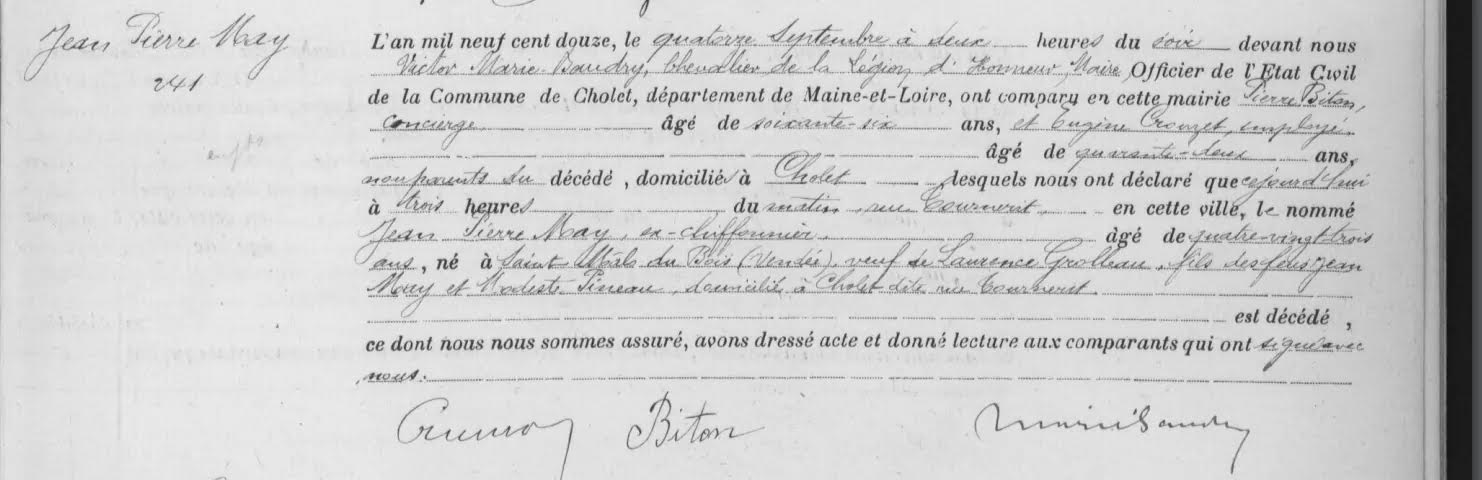 Jean Pierre May
241
L'an mil neuf cent douze, le quatorze Septembre à deux heures du soir devant nous
Victor Marie-Baudry, Chevalier de la Légion d'Honneur, Maire Officier de l'Etat Civil
de la Commune de Cholet, département de Maine-et-Loire, ont comparu en cette mairie Pierre Biton,
concierge âgé de soixante-six ans, et Eugène Crouzet, employé
âgé de quarante-deux ans,
non parents du décédé, domiciliés à Cholet lesquels nous ont déclaré que cejourd'hui
à trois heures du matin, rue Tournerit en cette ville, le nommé
Jean Pierre May, ex-chiffonnier, âgé de quatre-vingt-trois
ans, né à Saint du Bois (Vendée), veuf de Laurence Grolleau, fils des feus Jean
May et Modeste Pineau, domicilié à Cholet dite rue Tournerit
est décédé,
ce dont nous nous sommes assuré, avons dressé acte et donné lecture aux comparants qui ont signé avec
nous.
Biton